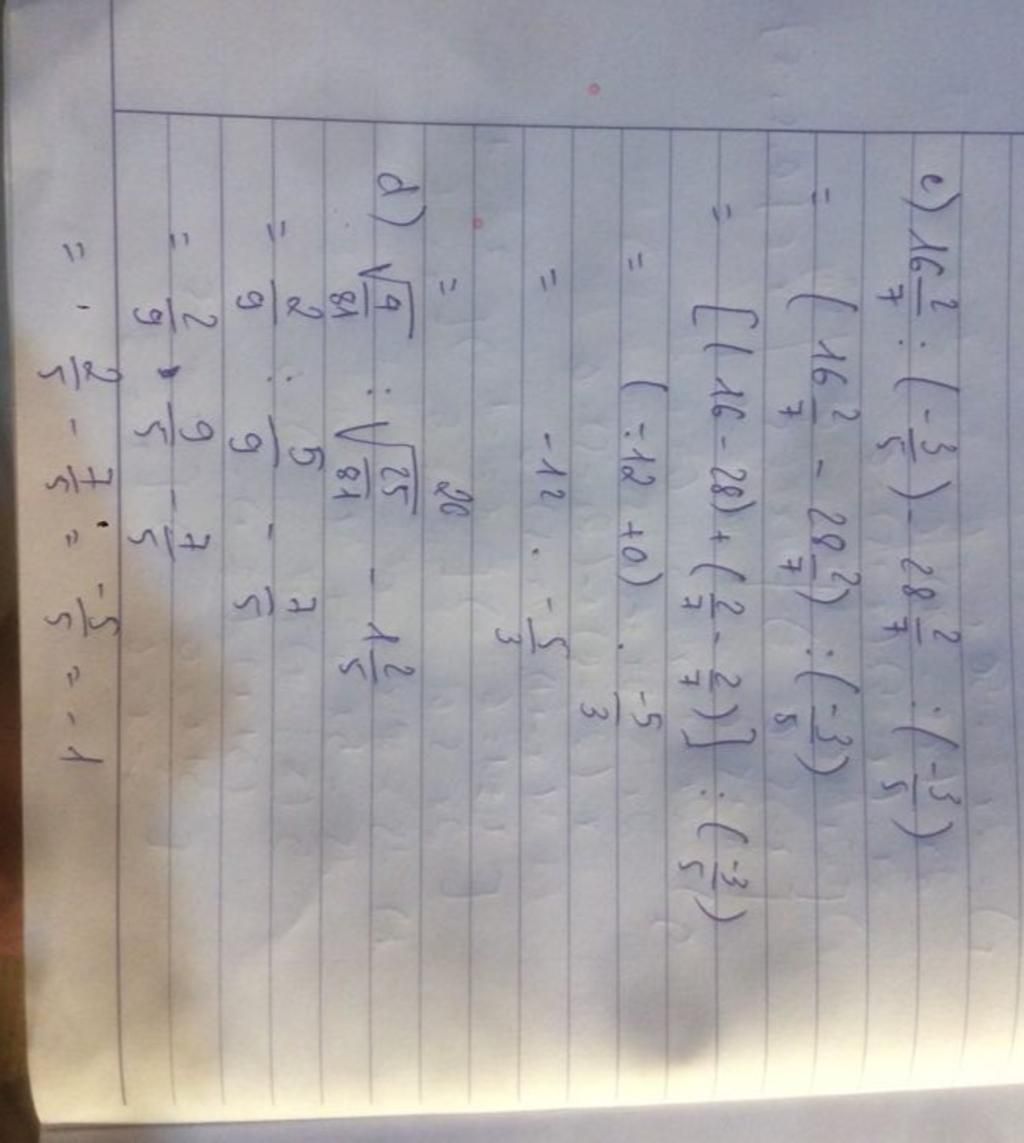 c) 16 2/7 : (-3/5) - 28 2/7 : (-3/5)
= (16 2/7 - 28 2/7) : (-3/5)
= [(16 - 28) + (2/7 - 2/7)] : (-3/5)
= (-12 + 0) . -5/3
= -12 . -5/3
= 20
d) √9/81 : √25/81 - 1 2/5
= 2/9 : 5/9 - 7/5
= 2/9 . 9/5 - 7/5
= 2/5 - 7/5 = -5/5 = -1